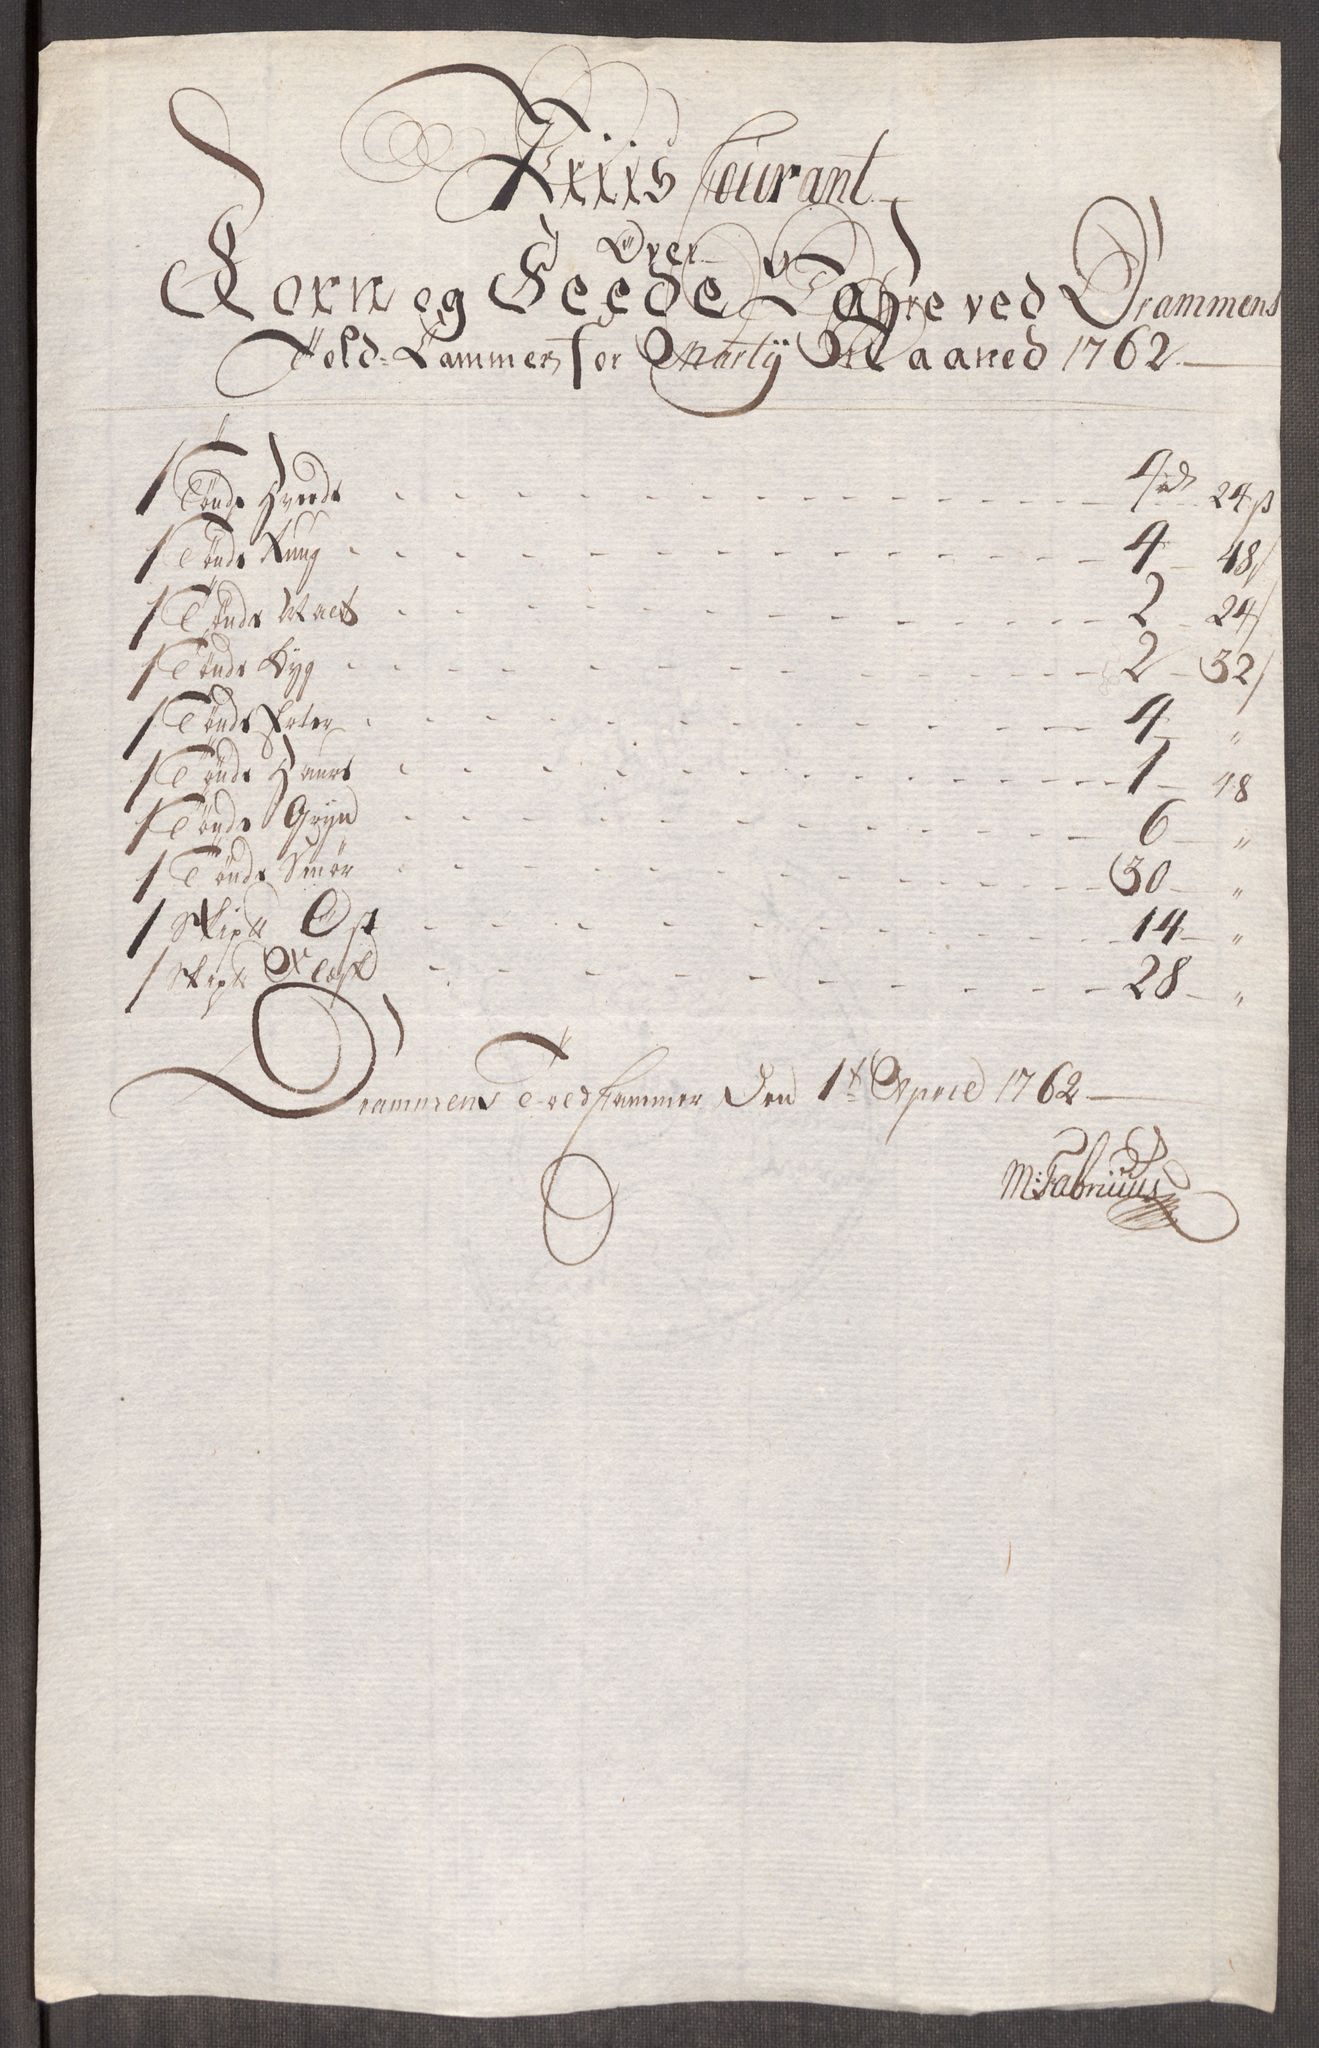 Priis Courant
Over
Korn og Feede Vahre ved Drammens
Told-Cammer for Martij Maaned 1762
1 Tønde Hvede 4 rd 24 ß
1 Tønde Rug 4 48 ß
1 Tønde Malt 2 24 ß
1 Tønde Byg 2 32 ß
1 Tønde Erter 4 "
1 Tønde Haure 1 48
1 Tønde Gryn 6 "
1 Tønde Smør 30 "
1 Skip℔ Ost 14 "
1 Skip℔ Flæsk 28 "
Drammens Toldkammer den 1t April 1762
M: Fabritius